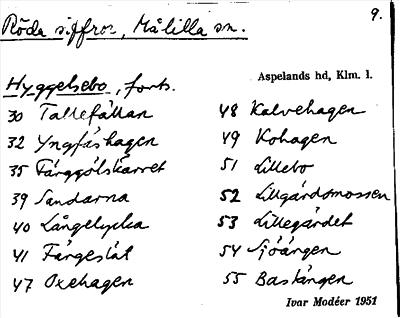 9.
Röda siffror, Målilla sn.
Aspelands hd, Klm. l.
Hyggelsebo, forts.
30 Tallefällan
32 Yngfåshagen
35 Färggölskärret
39 Sandarna
40 Långelycka
41 Färgeslät
47 Oxehagen
48 Kalvehagen
49 Kohagen
51 Lillebo
52 Lillgärdsmossen
53 Lillegärdet
54 Sjöängen
55 Bastängen
Ivar Modéer 1951